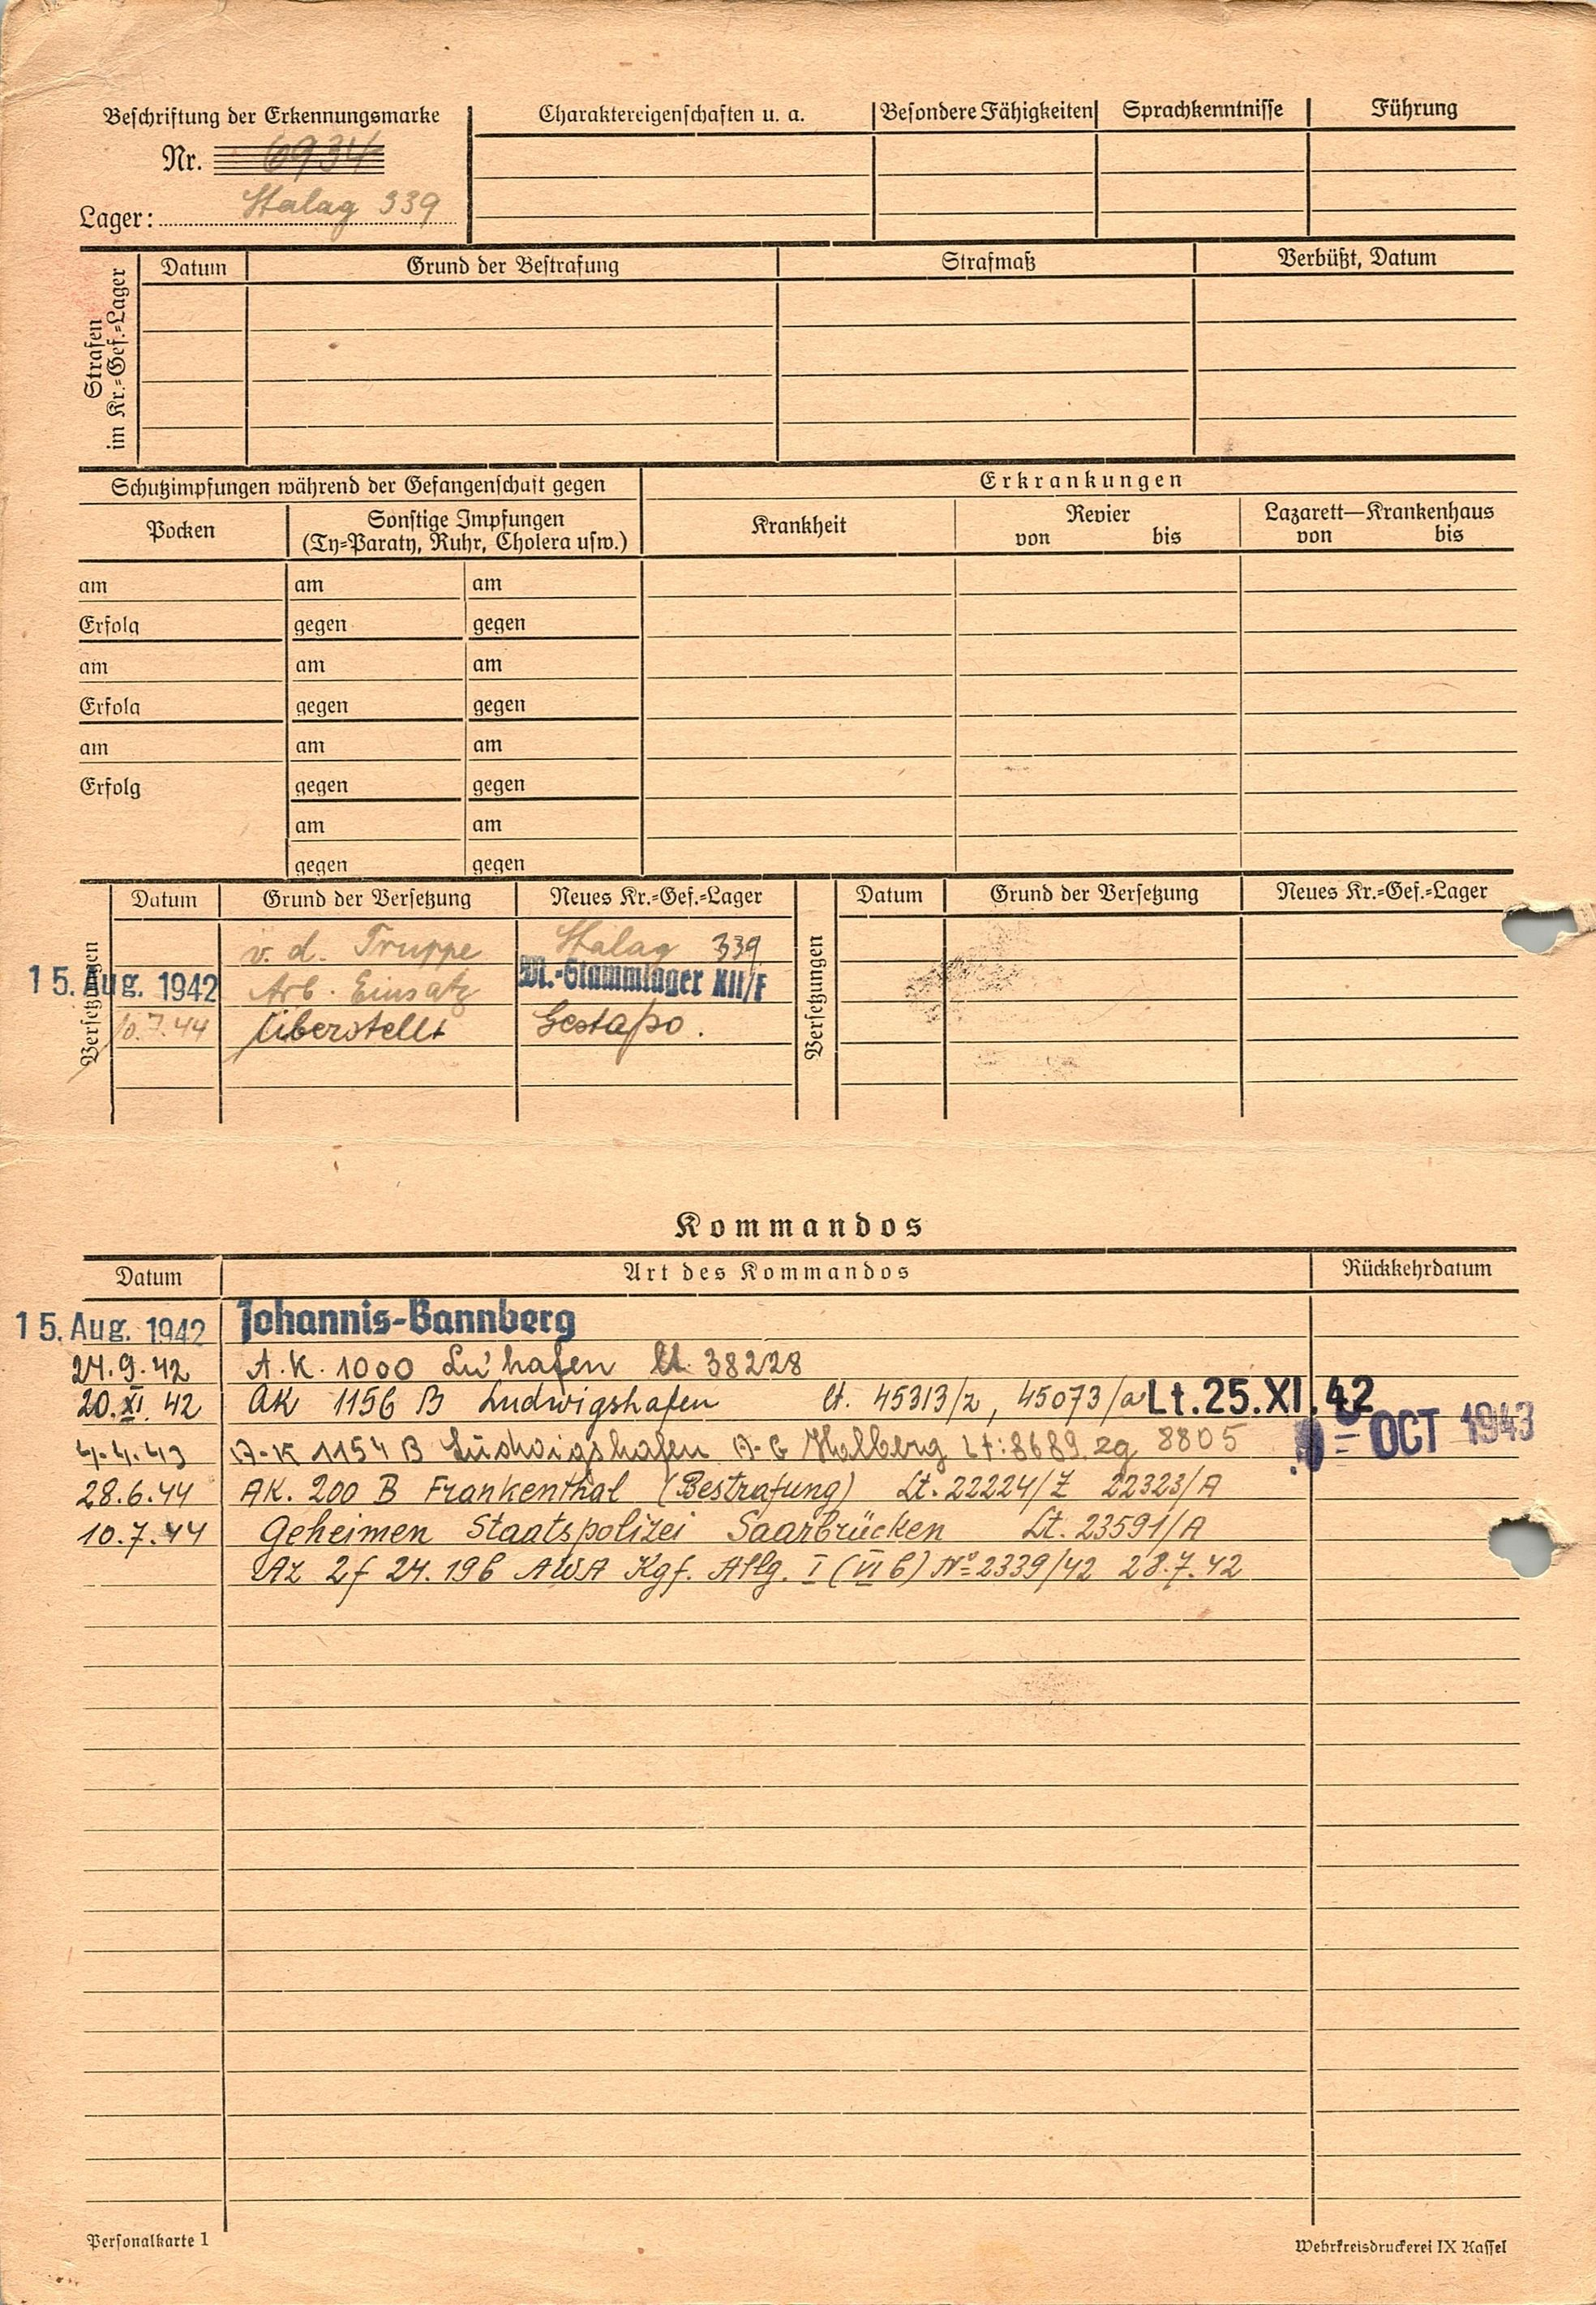 Beschriftung der Erkennungsmarke
Nr. 6934
Lager: Stalag 339
Charaktereigenschaften u. a.
Besondere Fähigkeiten
Sprachkenntnisse
Führung
Strafen
im Kr.=Gef.=Lager
Datum
Grund der Bestrafung
Strafmaß
Verbüßt, Datum
Schutzimpfungen während der Gefangenschaft gegen
Erkrankungen
Pocken
Sonstige Impfungen
(Ty=Paraty, Ruhr, Cholera usw.)
Krankheit
Revier
von bis
Lazarett—Krankenhaus
von bis
am am am
Erfolg gegen gegen
am am am
Erfolg gegen gegen
am am am
Erfolg gegen gegen
am am
gegen gegen
Versetzungen
Datum Grund der Versetzung Neues Kr.=Gef.=Lager
v. d. Truppe Stalag 339
15. Aug. 1942 Arb. Einsatz M.-Stammlager XII/F
10.7.44 überstellt Gestapo.
Versetzungen
Datum Grund der Versetzung Neues Kr.=Gef.=Lager
Kommandos
Datum Art des Kommandos Rückkehrdatum
15. Aug. 1942 Johannis-Bannberg
24.9.42 A.K. 1000 Lu'hafen lt. 38228
20.XI.42 AK 1156 B Ludwigshafen lt. 45313/z, 45073/a Lt.25.XI.42
4.4.43 A-K 1154 B Ludwigshafen A-G Halberg Lt:8689.zg 8805 OCT 1943
28.6.44 AK. 200 B Frankenthal (Bestrafung) Lt. 22224/Z 22323/A
10.7.44 Geheimen Staatspolizei Saarbrücken Lt. 23591/A
Az 2f 24.19b AWA Kgf. Allg. I (VI b) Nº 2339/42 28.7.42
Personalkarte 1
Wehrkreisdruckerei IX Kassel